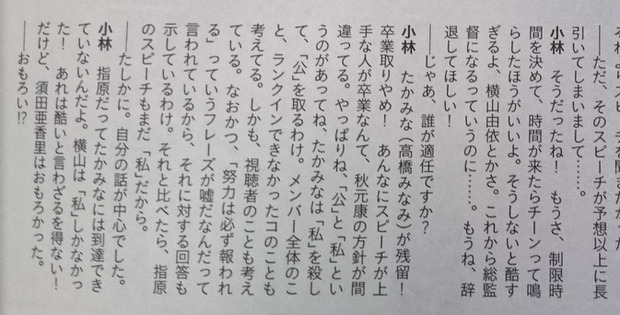 ――ただ、そのスピーチが予想以上に長
引いてしまいまして……。
小林　そうだったね！　もうさ、制限時
間を決めて、時間が来たらチーンって鳴
らしたほうがいいよ。そうしないと酷す
ぎるよ、横山由依とかさ。これから総監
督になるっていうのに……。もうね、辞
退してほしい！
――じゃあ、誰が適任ですか？
小林　たかみな（高橋みなみ）が残留！
卒業取りやめ！　あんなにスピーチが上
手な人が卒業なんて、秋元康の方針が間
違ってる。やっぱりね、「公」と「私」とい
うのがあってね、たかみなは「私」を殺し
て、「公」を取るわけ。メンバー全体のこ
と、ランクインできなかったコのことも
考えてる。しかも、視聴者のことも考え
ている。なおかつ、「努力は必ず報われ
る」っていうフレーズが嘘だなんだって
言われているから、それに対する回答も
示しているわけ。それと比べたら、指原
のスピーチもまだ「私」だから。
――たしかに。自分の話が中心でした。
小林　指原だってたかみなには到達でき
ていないんだよ。横山は「私」しかなかっ
た！　あれは酷いと言わざるを得ない！
だけど、須田亜香里はおもろかった。
――おもろい!?